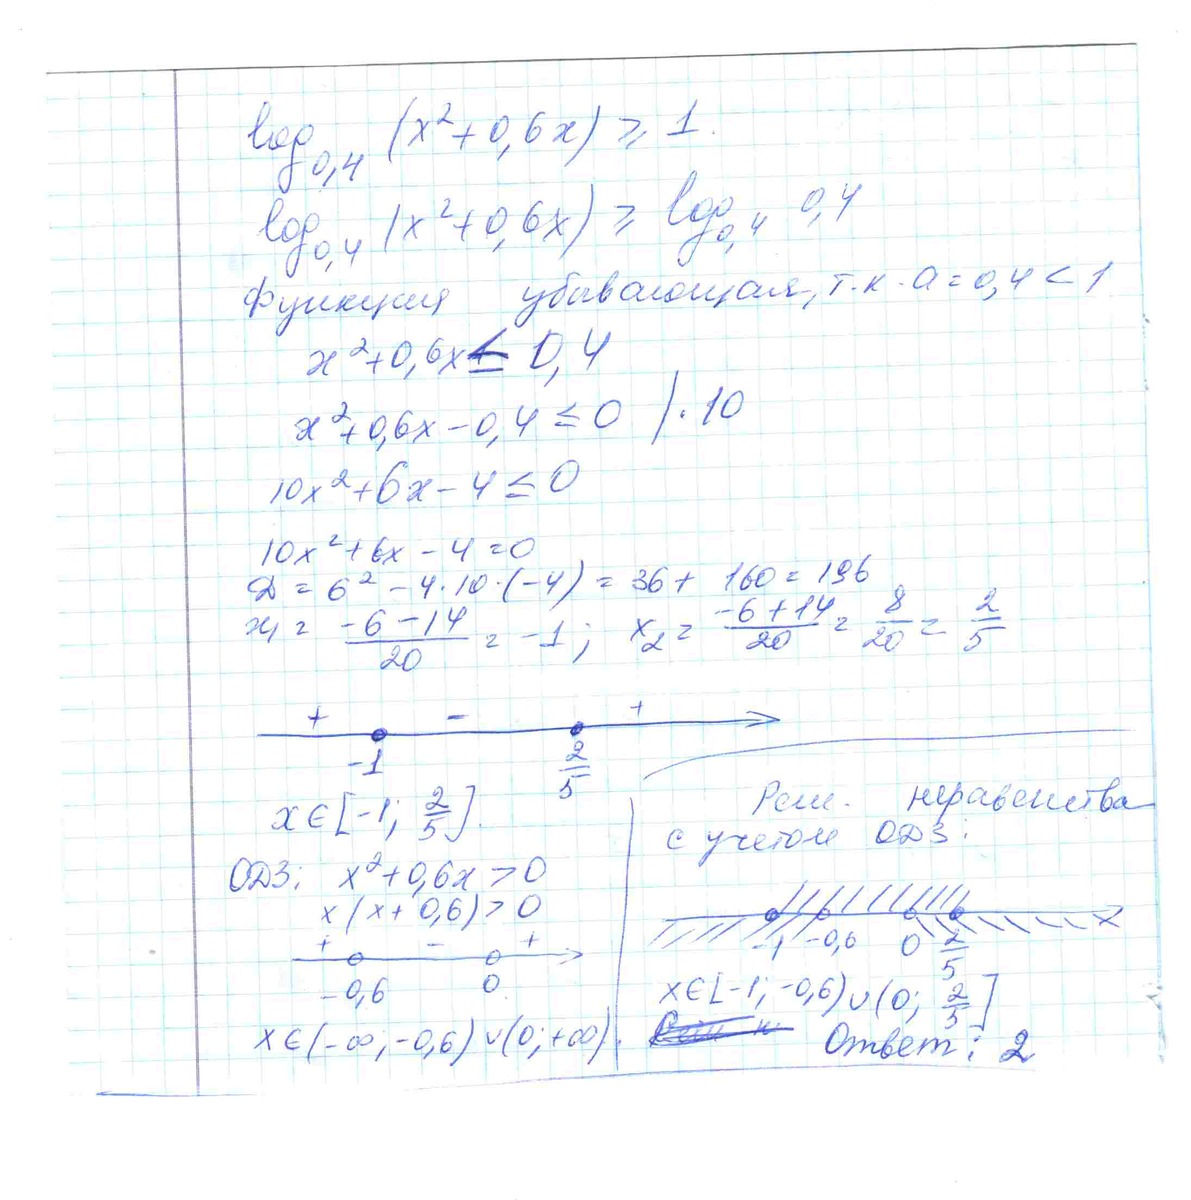 log₀,₄ (x² + 0,6x) ≥ 1.
log₀,₄ (x² + 0,6x) ≥ log₀,₄ 0,4
Функция убывающая, т.к. a = 0,4 < 1
x² + 0,6x ≤ 0,4
x² + 0,6x − 0,4 ≤ 0 / · 10
10x² + 6x − 4 ≤ 0
10x² + 6x − 4 = 0
Д = 6² − 4 · 10 · (−4) = 36 + 160 = 196
x₁ = (−6 − 14)/20 = −1; x₂ = (−6 + 14)/20 = 8/20 = 2/5
+ − +
−1 2/5
x ∈ [−1; 2/5].
ОДЗ: x² + 0,6x > 0
x(x + 0,6) > 0
+ − +
−0,6 0
x ∈ (−∞; −0,6) ∪ (0; +∞).
Реш. неравенства
с учетом ОДЗ:
−1 −0,6 0 2/5 x
x ∈ [−1; −0,6) ∪ (0; 2/5]
Ответ: 2